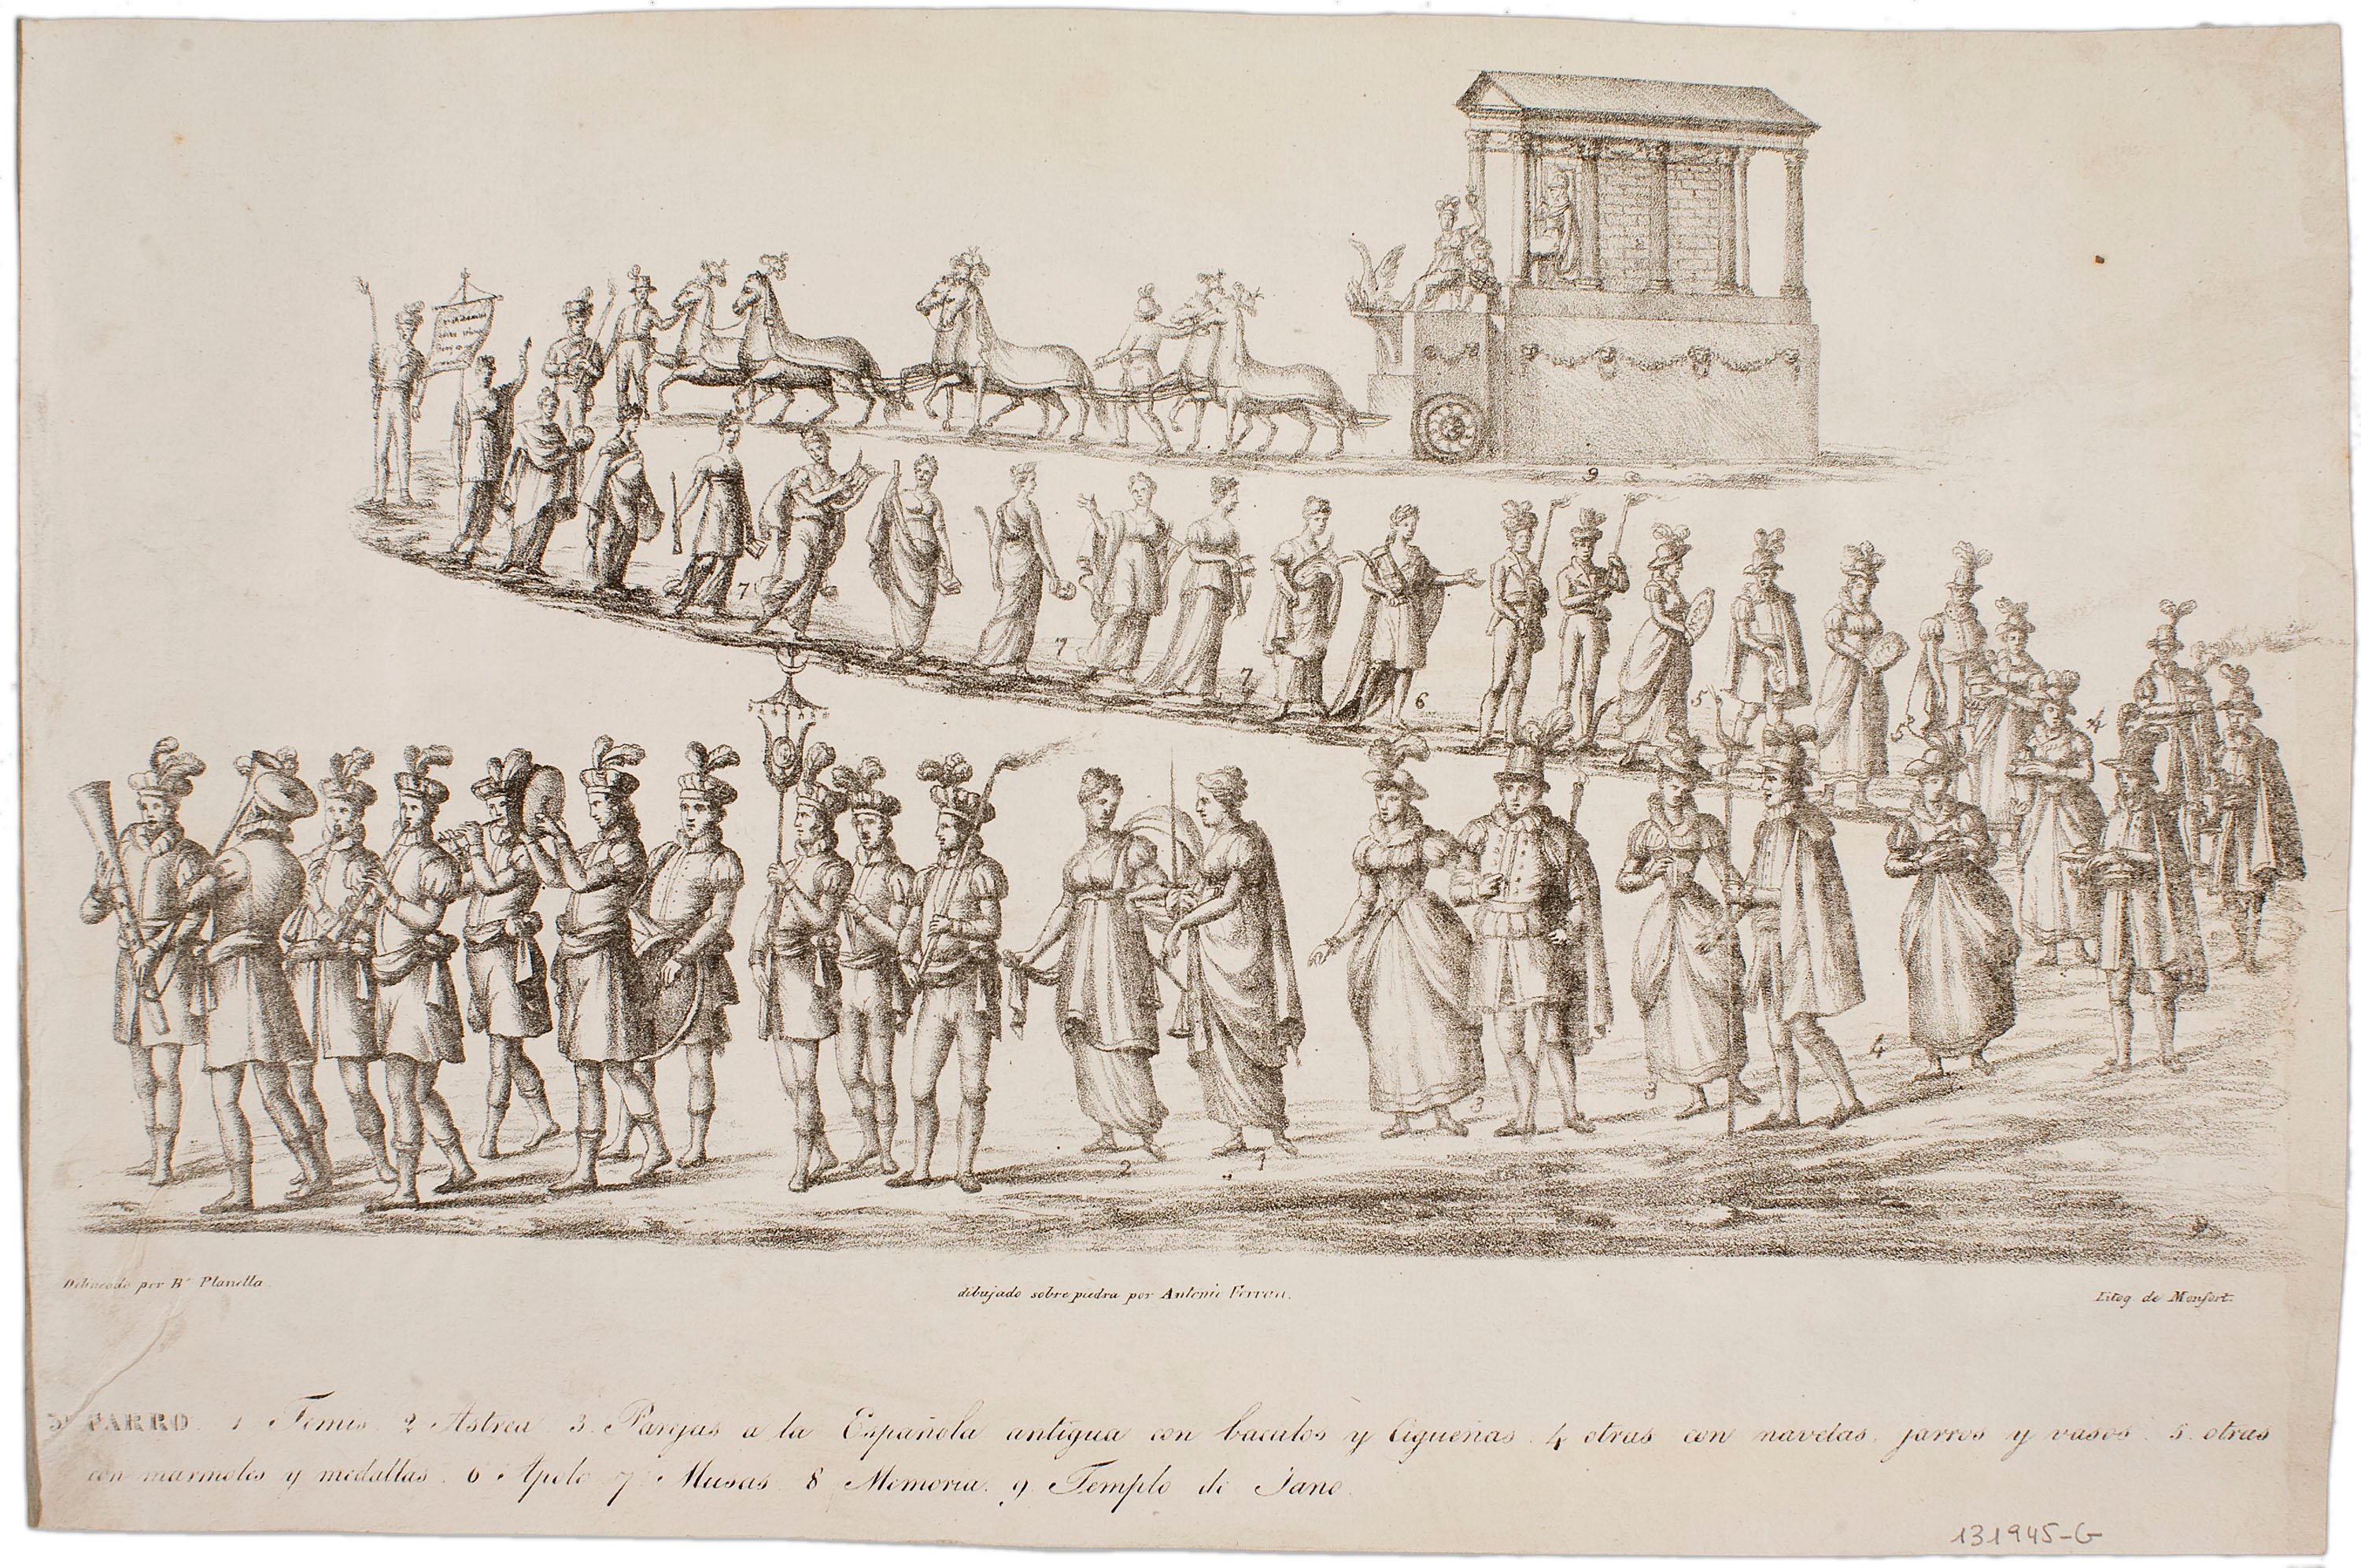 7
7
7
6
5
4
9
8
3
3
4
2
1
Delineado por Bn. Planella
dibujado sobre piedra por Antonio Ferran.
Litog de Monfort.
3r CARRO. 1 Temis. 2 Astrea. 3. Parejas a la Española antigua con baculos y Cigueñas. 4 otras con navetas, jarros y vasos. 5. otras
con marmoles y medallas. 6 Apolo 7 Musas 8 Memoria. 9. Templo de Jano.
131945-G